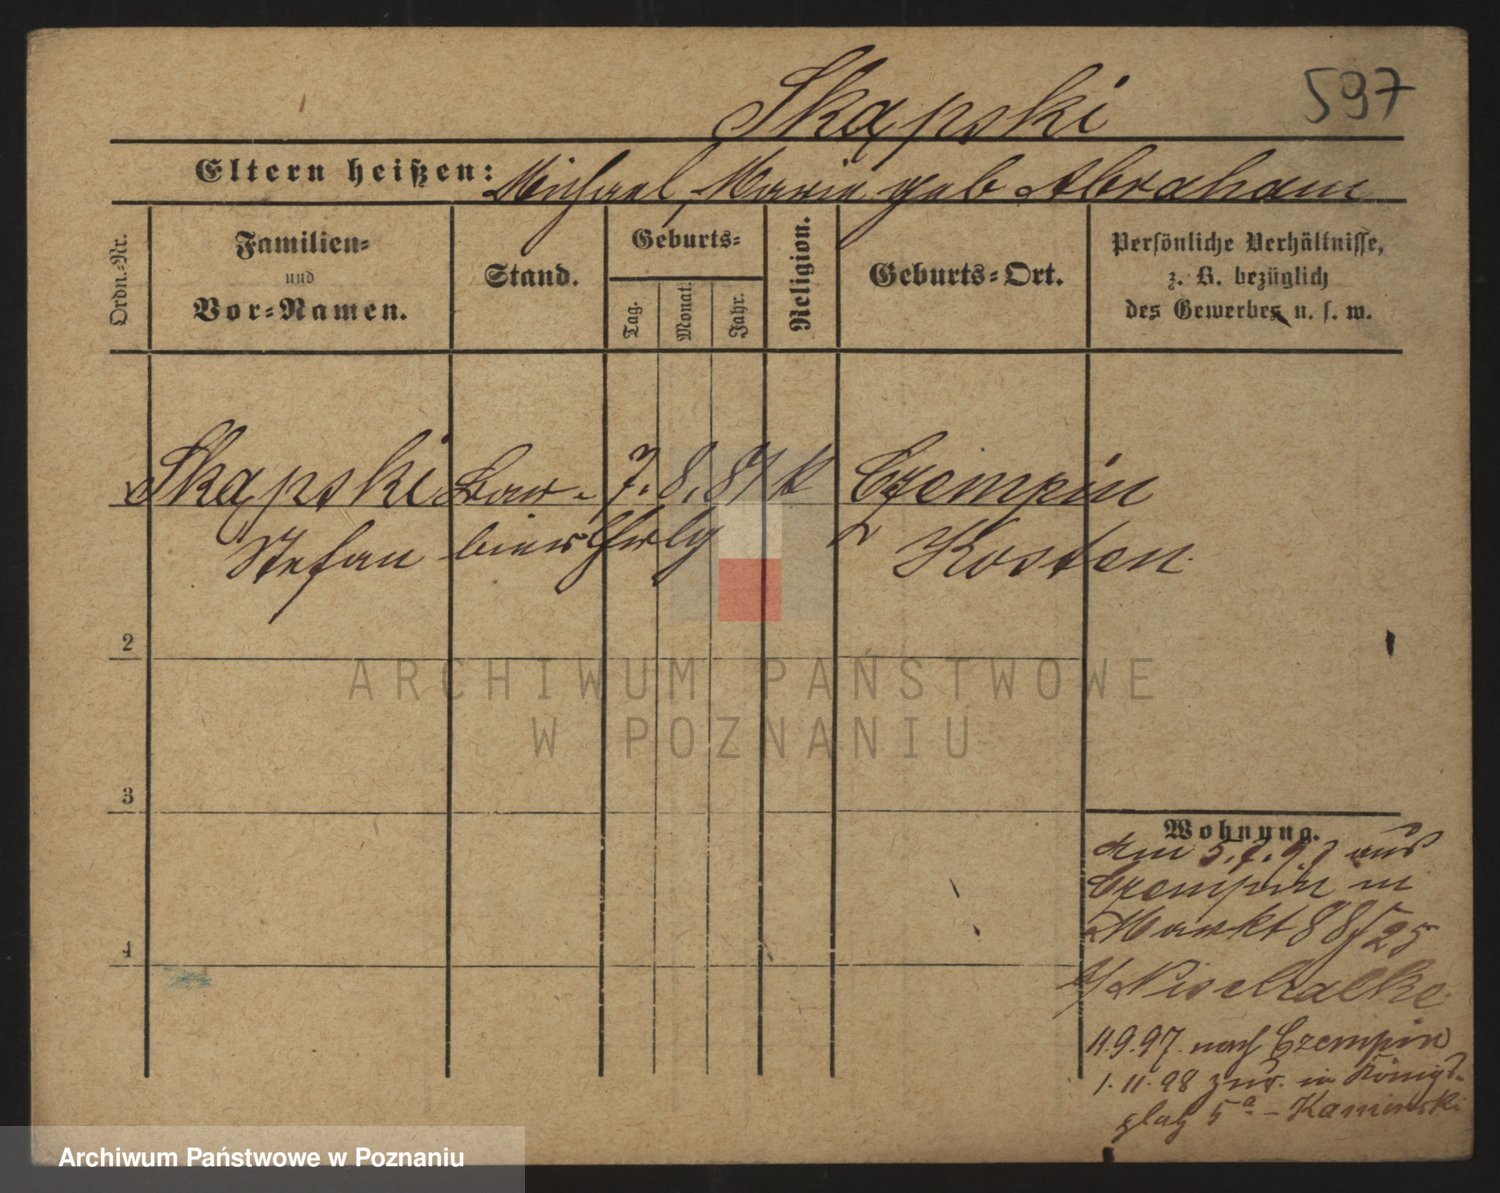 597
Skąpski
Eltern heißen: Michael, Marie geb Abraham
Ordn.=Nr.
Familien=
und
Vor=Namen.
Stand.
Geburts=
Tag.
Monat.
Jahr.
Religion.
Geburts=Ort.
Persönliche Verhältnisse,
z. B. bezüglich
des Gewerbes u. s. w.
Skąpski Bar- 7. 8. 81 k Czempin
Stefan bier Kosten
2
ARCHIWUM PAŃSTWOWE
W POZNANIU
3
4
Wohnung.
am 5.7.97 aus
Czempin in
Markt 88
11.9.97. nach Czempin
1.11.98 zur. in Königs-
platz 5a - Kaminski
Archiwum Państwowe w Poznaniu